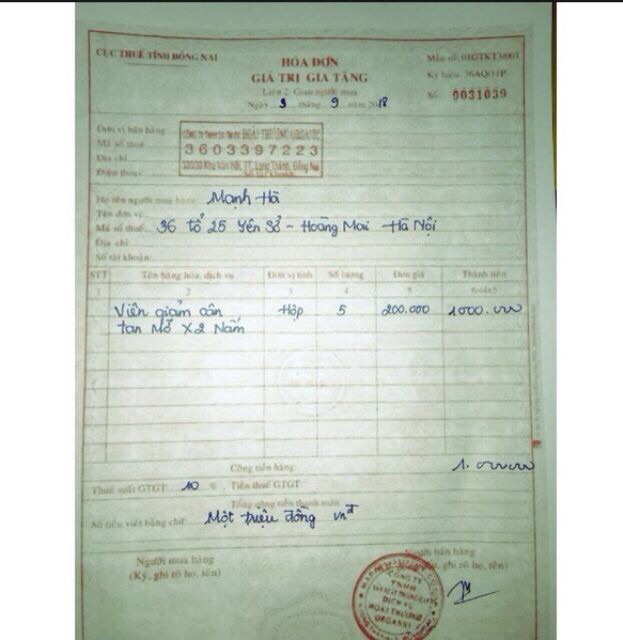 CỤC THUẾ TỈNH ĐỒNG NAI
HÓA ĐƠN
GIÁ TRỊ GIA TĂNG
Liên 2: Giao người mua
Ngày 3 tháng 9 năm 2018
Mẫu số: 01GTKT3/001
Ký hiệu: 36AQ/11P
Số: 0031039
Đơn vị bán hàng
HOÀI THƯƠNG ORGANIC
Mã số thuế
3603397223
Địa chỉ
TT. Long Thành, Đồng Nai
Điện thoại
Số tài khoản
Họ tên người mua hàng Mạnh Hà
Tên đơn vị
Mã số thuế 36 tổ 25 Yên Sở - Hoàng Mai Hà Nội
Địa chỉ
Số tài khoản
STT Tên hàng hóa, dịch vụ Đơn vị tính Số lượng Đơn giá Thành tiền
1 2 3 4 5 6=4x5
Viên giảm cân Hộp 5 200.000 1000.000
tan Mỡ X2 Nấm
Cộng tiền hàng: 1.000000
Thuế suất GTGT: 10 % Tiền thuế GTGT
Tổng cộng tiền thanh toán
Số tiền viết bằng chữ: Một triệu đồng vnđ
Người mua hàng
(Ký, ghi rõ họ, tên)
Người bán hàng
ghi rõ họ, tên)
CÔNG TY
TNHH
DỊCH VỤ
HOÀI THƯƠNG